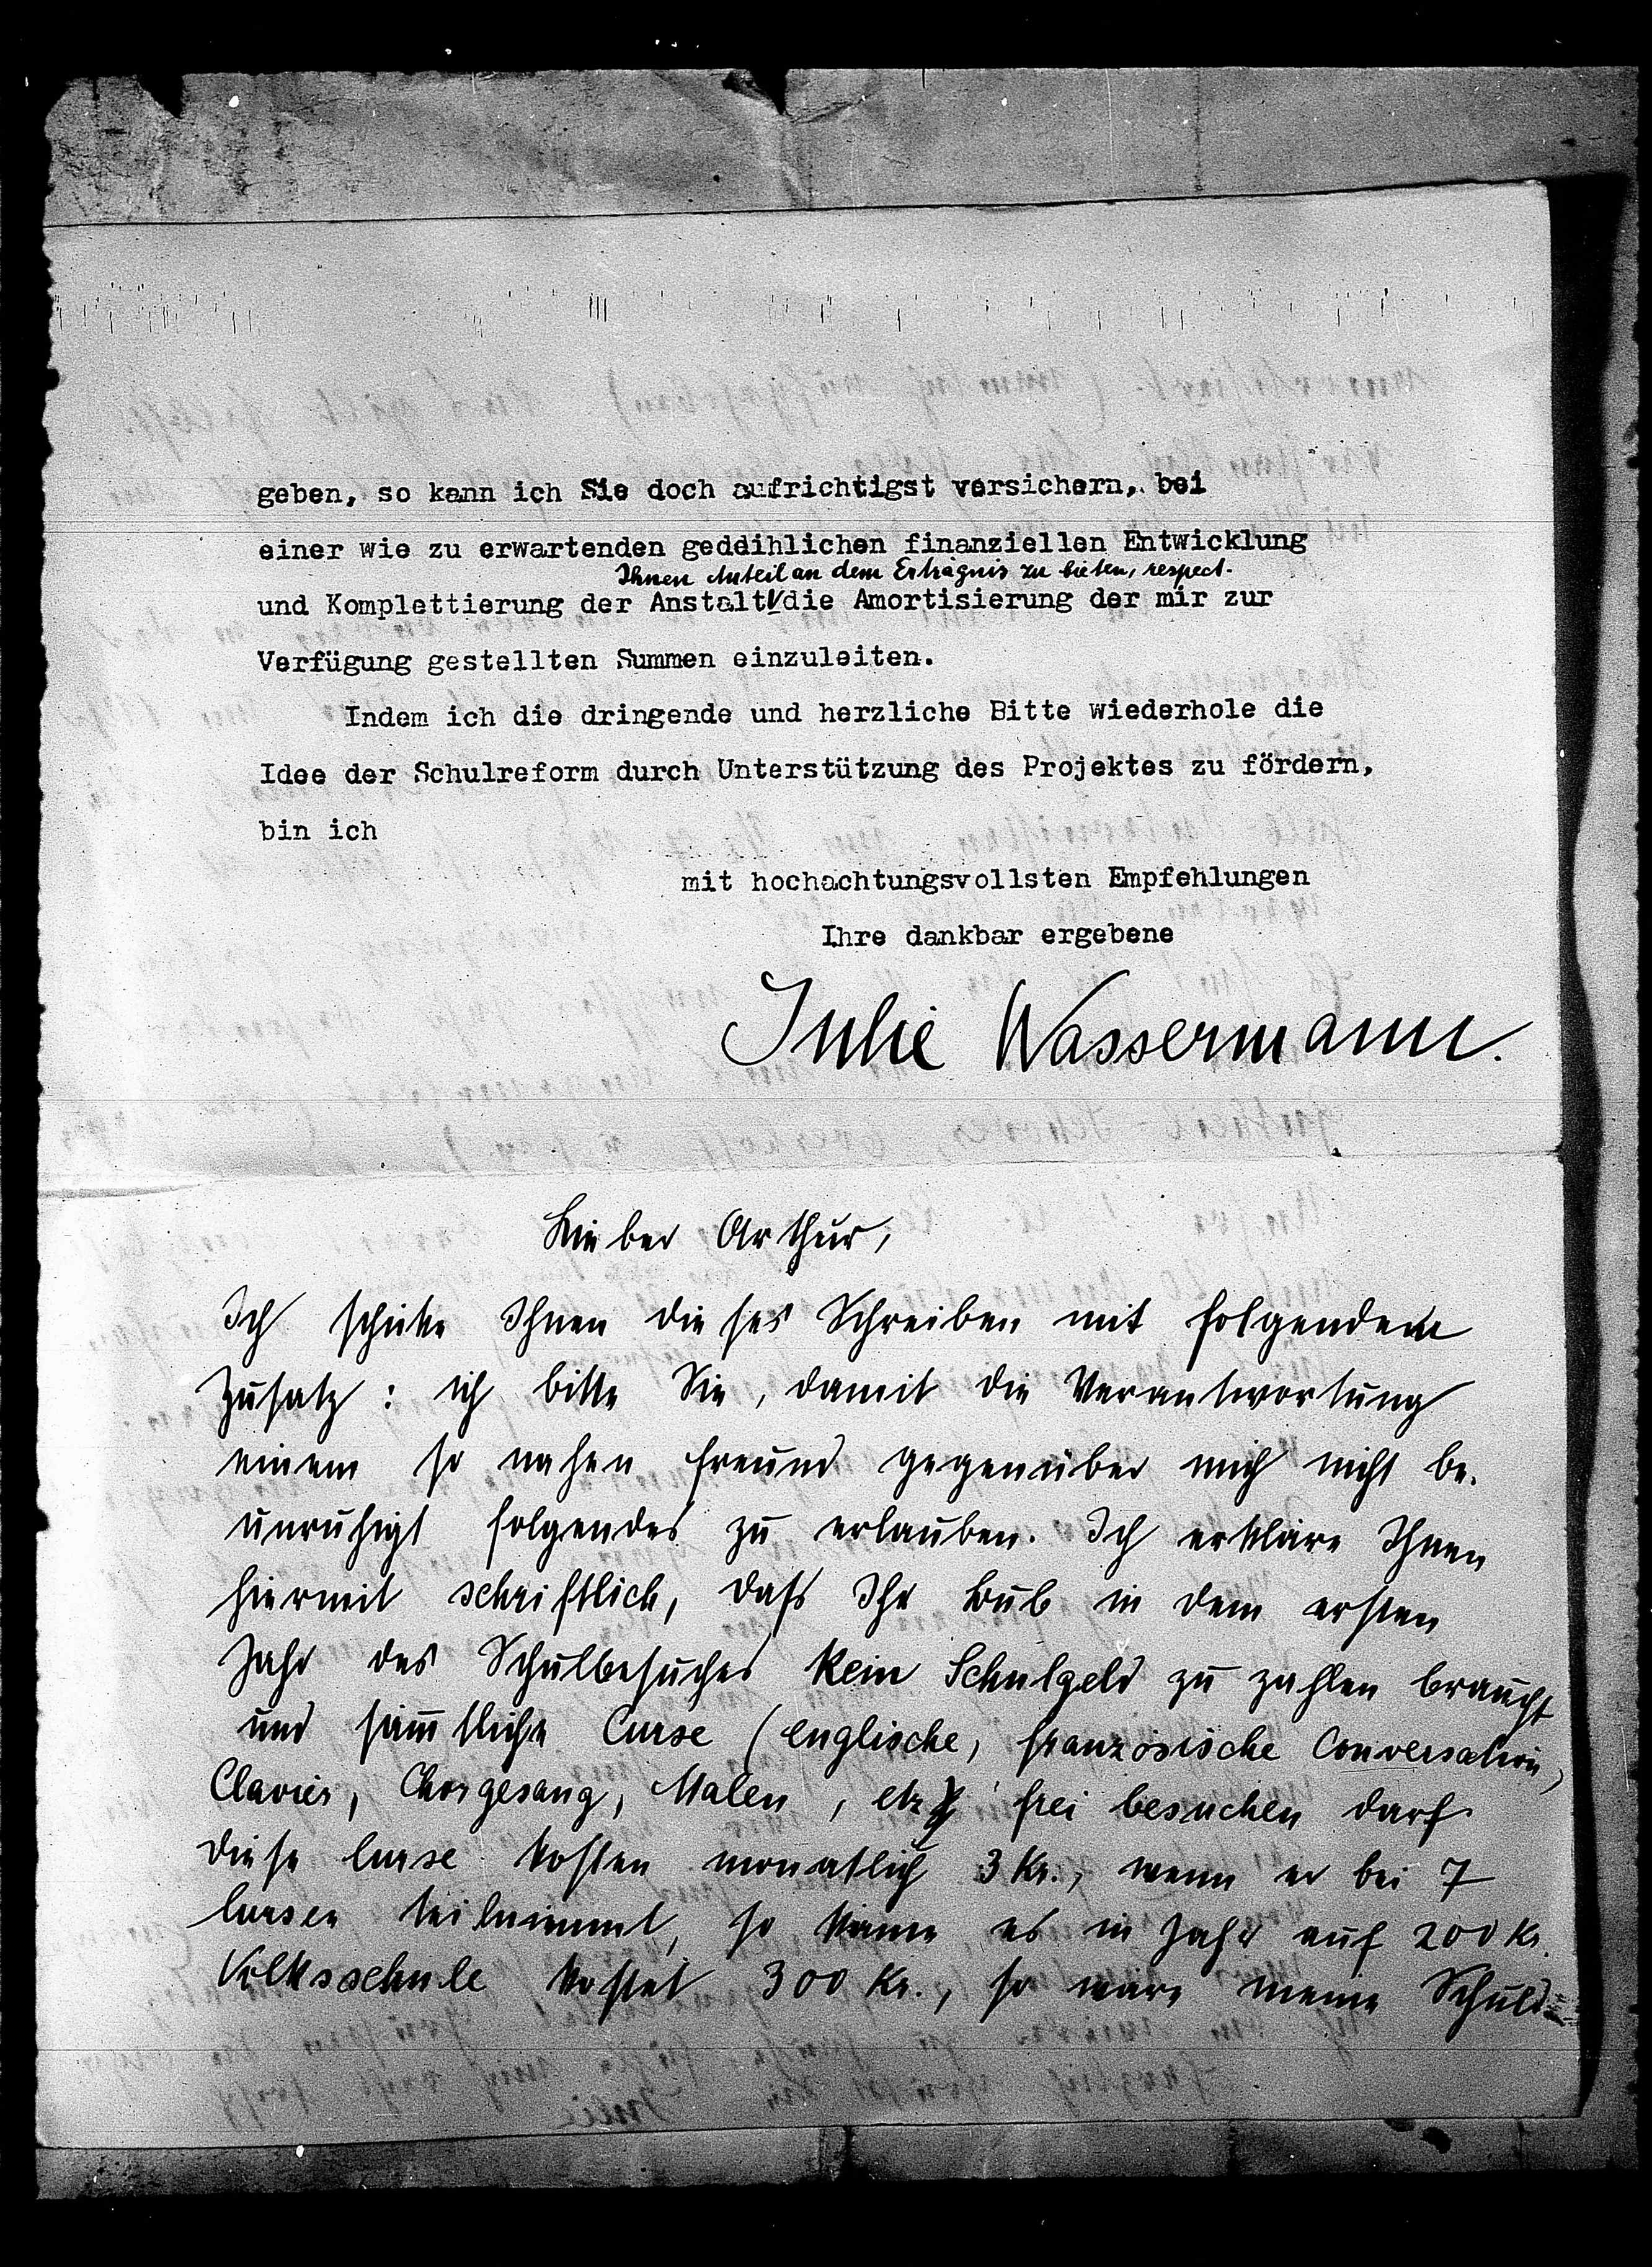 geben, so kann ich Sie doch aufrichtigst versichern, bei
einer wie zu erwartenden geddihlichen finanziellen Entwicklung
Ihnen Anteil an dem Erträgnis zu bieten, respect.
und Komplettierung der Anstalt die Amortisierung der mir zur
Verfügung gestellten Summen einzuleiten.
Indem ich die dringende und herzliche Bitte wiederhole die
Idee der Schulreform durch Unterstützung des Projektes zu fördern,
bin ich
mit hochachtungsvollsten Empfehlungen
Ihre dankbar ergebene
Julie Wassermann.
Lieber Arthur,
Ich schicke Ihnen dieses Schreiben mit folgendem
Zusatz: ich bitte Sie, damit die Verantwortung
einem so nahen Freund gegenüber mich nicht be-
unruhigt folgendes zu erlauben. Ich erkläre Ihnen
hiermit schriftlich, dass Ihr Bub in dem ersten
Jahr des Schulbesuches kein Schulgeld zu zahlen braucht
und sämtliche Curse (englische, französische Conversation,
Clavier, Chorgesang, Malen, etz) frei besuchen darf
diese Curse kosten monatlich 3 Kr., wenn er bei 7
Cursen teilnimmt, so käme es in Jahr auf 200 Kr.
Volksschule kostet 300 Kr., so wäre meine Schuld